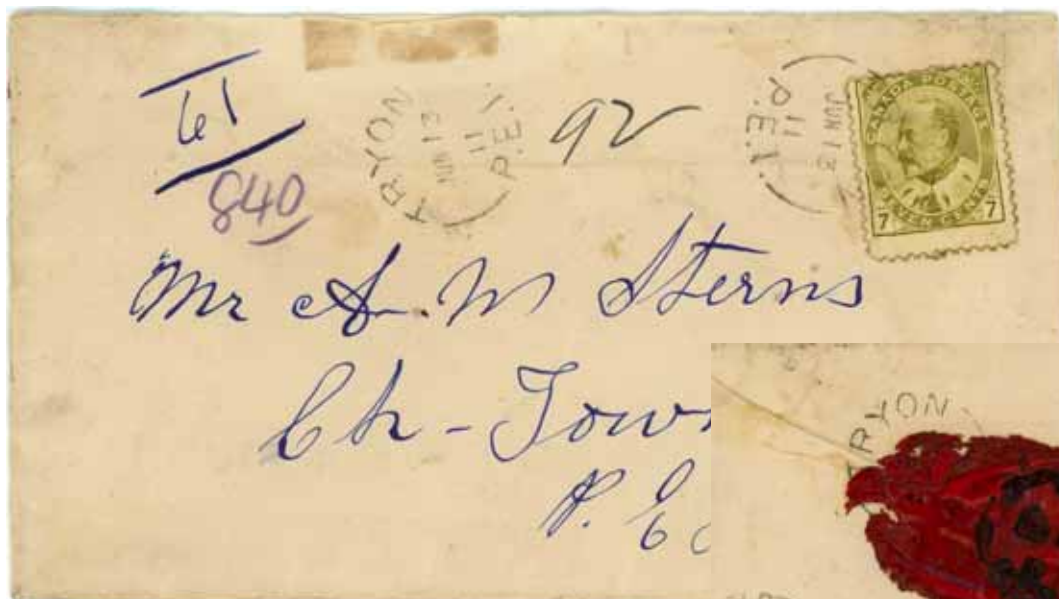 61
840
TRYON
JUN 13
11
P.E.I.
92
JUN 13
11
P.E.I.
CANADA POSTAGE
7 SEVEN CENTS 7
Mr A. M Sterns
Ch-Town
P. E
TRYON